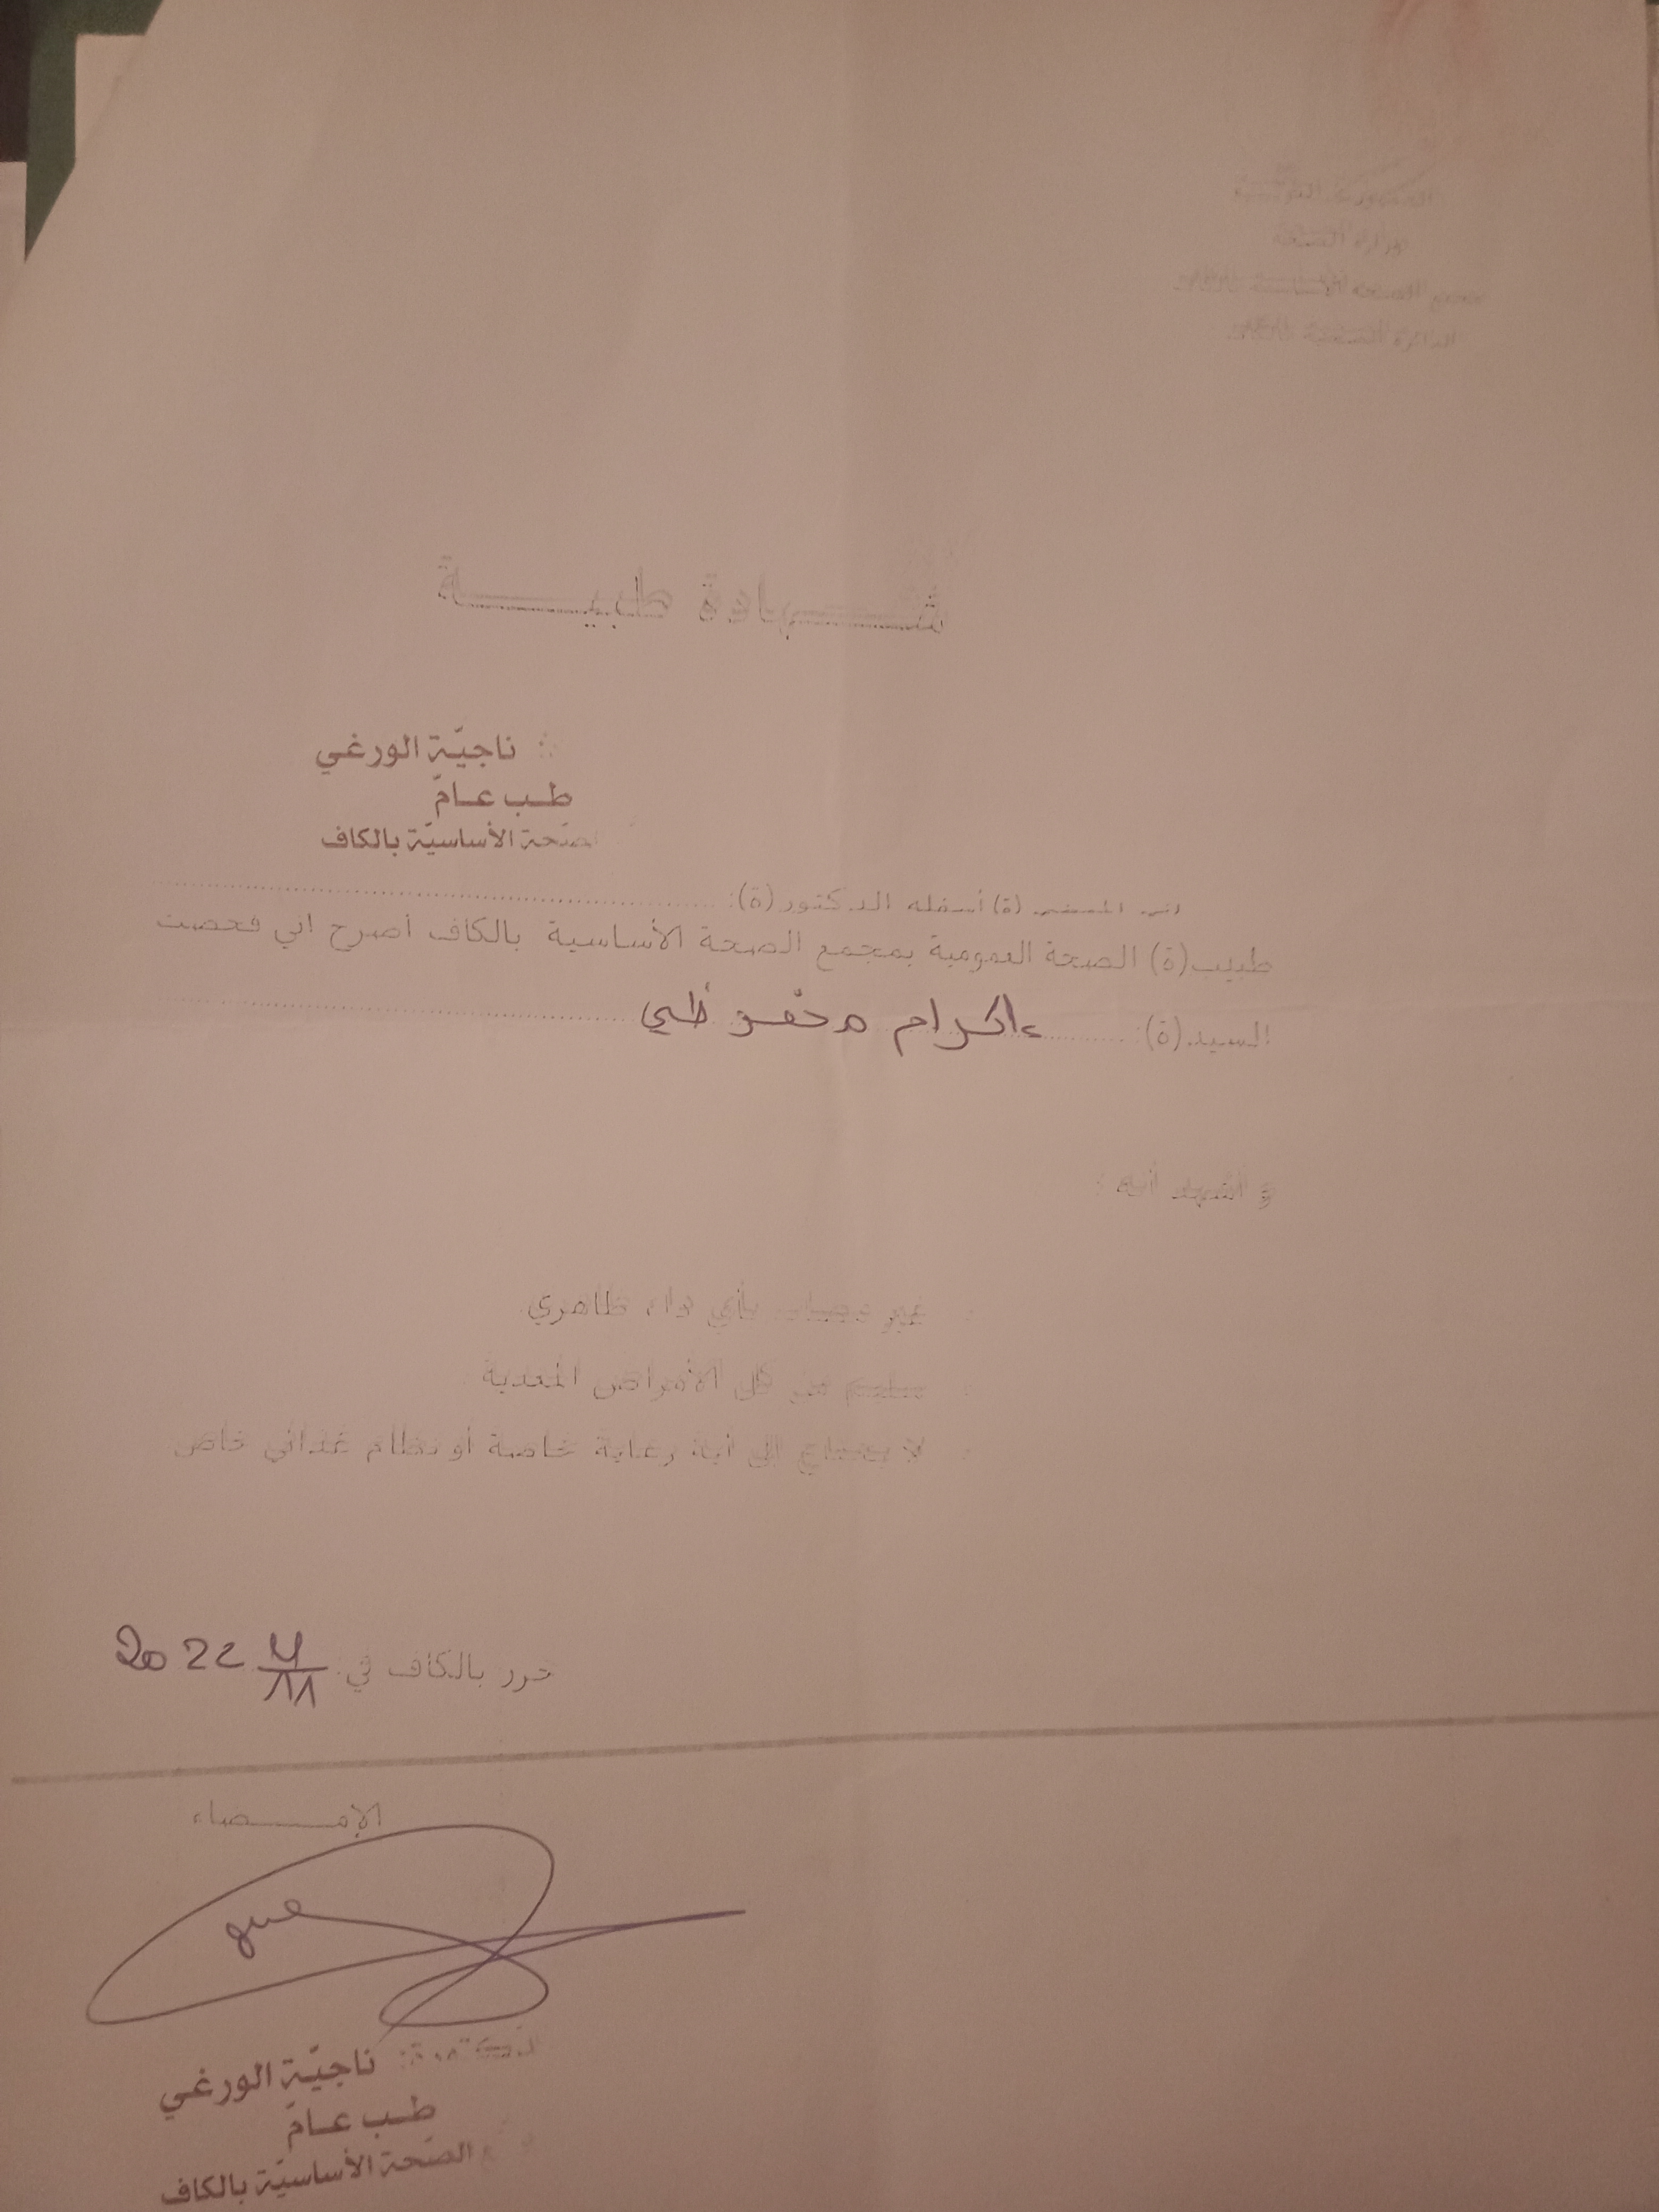 الجمهورية التونسية
وزارة الصحة
مجمع الصحة الأساسية بالكاف
الدائرة الصحية بالكاف
شهادة طبية
ناجيّة الورغي
طب عامّ
الصّحة الأساسيّة بالكاف
اني الممضي (ة) أسفله الدكتور(ة):
طبيب(ة) الصحة العمومية بمجمع الصحة الأساسية بالكاف أصرح اني فحصت
السيد(ة): اكرام محفوظي
و أشهد أنه :
غير مصاب بأي داء ظاهري
سليم من كل الأمراض المعدية
لا يحتاج إلى أية رعاية خاصة أو نظام غذائي خاص
حرر بالكاف في 2022
الإمضاء
الدكتورة: ناجيّة الورغي
طب عامّ
الصّحة الأساسيّة بالكاف